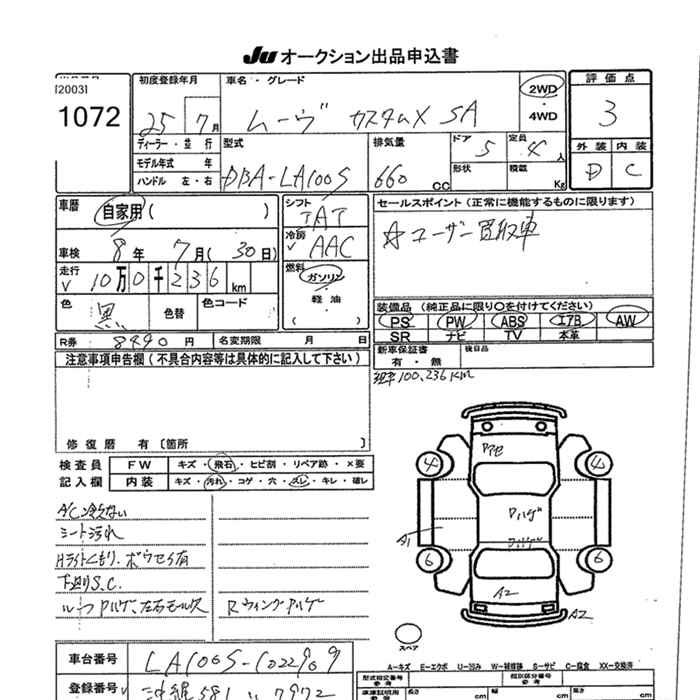 JU オークション出品申込書
[2003]
1072
初度登録年月
25年 7月
車名・グレード
ムーヴ カスタムX SA
2WD
・
4WD
評価点
3
ディーラー・並行
モデル年式 年
ハンドル 左・右
型式
DBA-LA100S
排気量
660 cc
ドア 5
形状
定員 4人
積載 Kg
外装 内装
D C
車歴 自家用( )
車検 8年 7月( 30日)
走行 10万0千236 km
色 黒 色替 色コード
シフト
IAT
冷房
AAC
燃料
ガソリン
軽油
( )
セールスポイント(正常に機能するものに限ります)
☆ユーザー買取車
装備品 (純正品に限り○を付けてください)
PS PW ABS エアB AW
SR ナビ TV 本革
R券 8490円 名変期限 月 日
新車保証書 後日品
有・無
現車100,236KM
注意事項申告欄(不具合内容等は具体的に記入して下さい)
修復歴 有〔箇所 〕
検査員 FW キズ・飛石・ヒビ割・リペア跡・×要
記入欄 内装 キズ・汚れ・コゲ・穴・スレ・キレ・破レ
A/C冷えない
シート汚れ
Hライトくもり、ボウセイ有
下廻りS.C.
ルーフPハゲ、左右モール欠
Rウィングハゲ
4 4
6 6
Pハゲ
A1
A2
A2
スペア
A-キズ E-エクボ U-凹み W-補修跡 S-サビ C-腐食 XX-交換済
車台番号 LA100S-1022909
登録番号 沖縄 581 い 7972
型式指定番号
参考
類別区分番号
参考
長さ cm 幅 cm 高さ cm